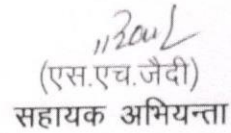 (एस.एच.जैदी)
सहायक अभियन्ता